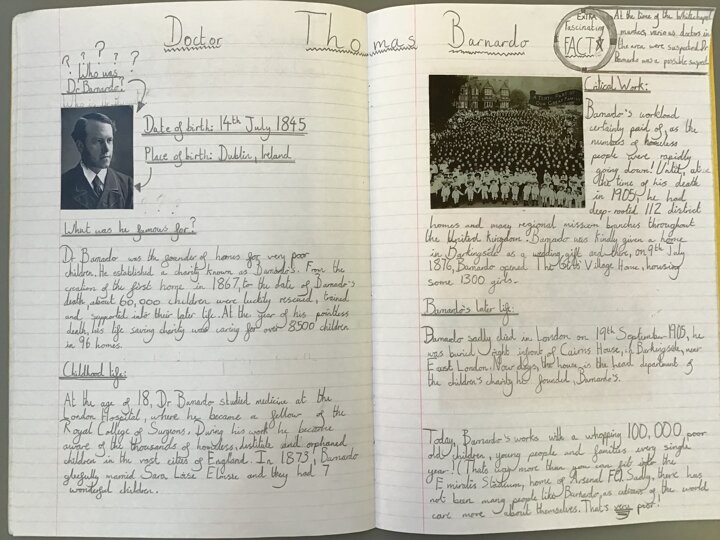 Doctor Thomas Barnardo
? ? ? ? ? ?
Who was
Dr Barnardo?
Date of birth: 14th July 1845
Place of birth: Dublin, Ireland
What was he famous for?
Dr Barnardo was the founder of homes for very poor
children. He established a charity known as Barnardo's. From the
creation of the first home in 1867, to the date of Barnardo's
death, about 60,000 children were luckily rescued, trained
and supported into their later life. At the year of his pointless
death, his life saving charity was caring for over 8500 children
in 96 homes.
Childhood life:
At the age of 18, Dr Barnardo studied medicine at the
London Hospital, where he became a fellow of the
Royal College of Surgeons. During his work he became
aware of the thousands of homeless, destitute and orphaned
children in the vast cities of England. In 1873, Barnardo
gleefully married Sara Loise Eloisse and they had 7
wonderful children.
EXTRA
fascinating
FACT
At the time of the Whitechapel
murders, various doctors in
the area were suspected. Dr
Barnardo was a possible suspect.
Critical Work:
Barnardo's workload
certainly paid of, as the
numbers of homeless
people were rapidly
going down! Until, at
the time of his death
in 1905, he had
deep-rooted 112 district
homes and many regional mission branches throughout
the United Kingdom. Barnardo was kindly given a home
in Barkingside as a wedding gift and there, on 9th July
1876, Barnardo opened The Girls Village Home, housing
some 1300 girls.
Barnardo's later life:
Barnardo sadly died in London on 19th September 1905, he
was buried right infront of Cairns House, in Barkingside, near
East London. Now days, the house is the head department of
the children's charity he founded, Barnardo's.
Today, Barnardo's works with a whopping 100,000 poor
old children, young people and families every single
year! (That's way more than you can fit into the
Emirates Stadium, home of Arsenal FC). Sadly, there has
not been many people like Barnardo, as citizens of the world
care more about themselves. That's very poor!